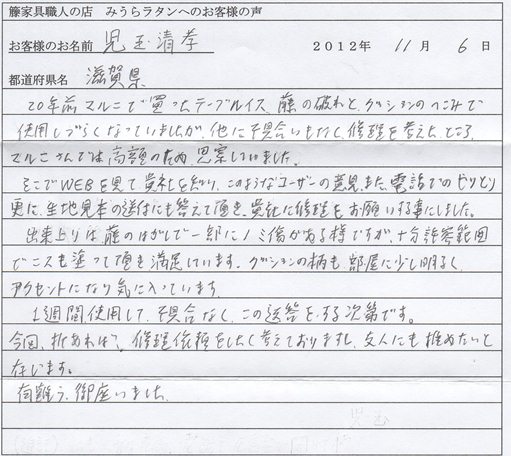 籐家具職人の店 みうらラタンへのお客様の声
お客様のお名前 児玉清孝 2012年 11月 6日
都道府県名 滋賀県
20年前マルニで買ったテーブルイス、籐の破れと、クッションのへこみで
使用しづらくなっていましたが、他に不具合いもなく、修理を考えたところ、
マルニさんでは高額のため、思案していました。
そこでWEBを見て貴社を知り、このようなユーザーの意見、また、電話でのやりとり
更に、生地見本の送付にも答えて頂き、貴社に修理をお願いする事にしました。
出来上りは、籐のはがしで一部にノミ傷がある様ですが、十分許容範囲
でニスも塗って頂き満足しています。クッションの柄も、部屋に少し明るく
アクセントになり気に入っています。
1週間使用して、不具合なく、この返答をする次第です。
今回、折あれば、修理依頼をしたく考えておりますし、友人にも推めたいと
存じます。
有難う、御座いました
児玉